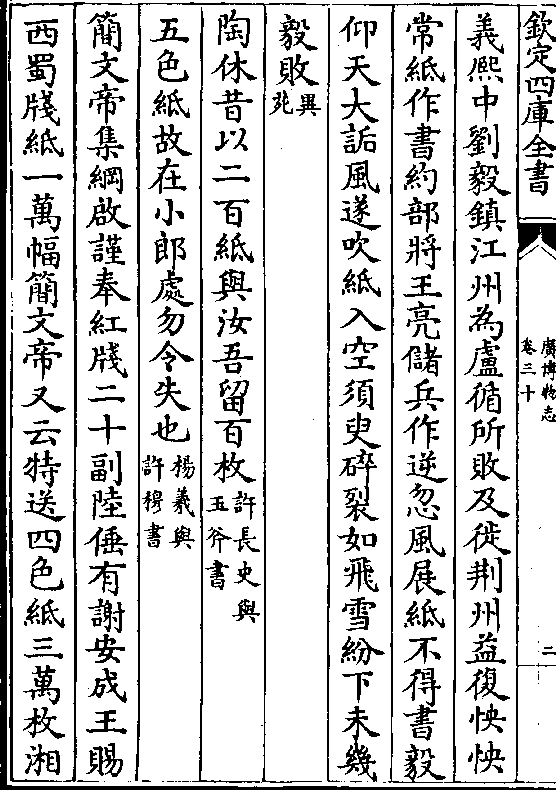 欽定四庫全書
廣博物志
卷三十
二
義熙中劉毅鎮江州為盧循所敗及徙荆州益復怏怏
常紙作書約部將王亮儲兵作逆忽風展紙不得書毅
仰天大詬風遂吹紙入空須臾碎裂如飛雪紛下未幾
毅敗異苑
陶休昔以二百紙與汝吾留百枚許長史與五斧書
五色紙故在小郎處勿令失也楊羲與許穆書
簡文帝集綱啟謹奉紅牋二十副陸倕有謝安成王賜
西蜀牋紙一萬幅簡文帝又云特送四色紙三萬枚湘